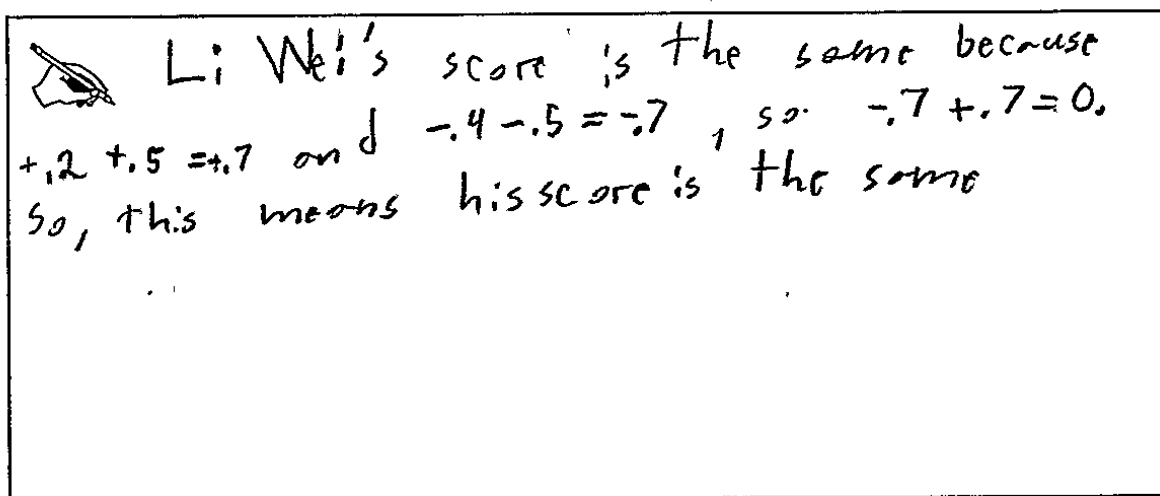 Li Wei's score is the same because
+.2 +.5 =+.7 and -.4 -.5 = -.7, so -.7 +.7 = 0.
So, this means his score is the same